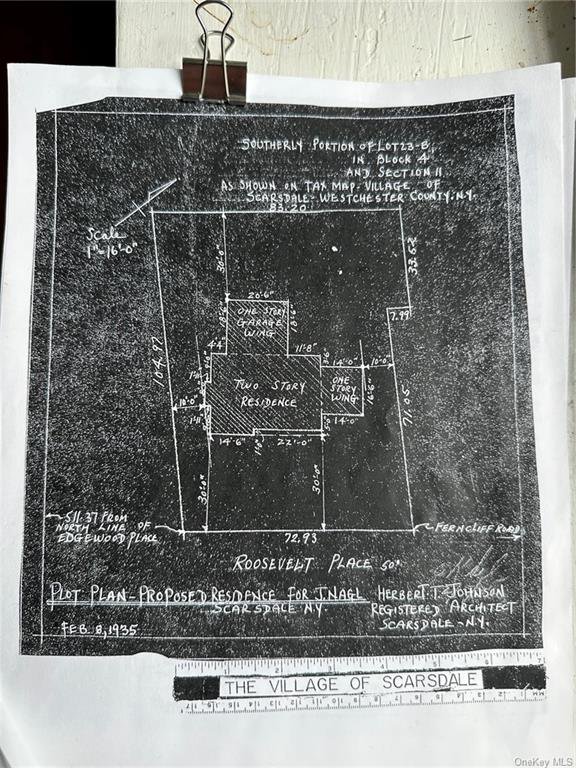 SOUTHERLY PORTION OF LOT 23-E,
IN BLOCK 4
AND SECTION 11
AS SHOWN ON TAX MAP-VILLAGE OF
SCARSDALE-WESTCHESTER COUNTY-N.Y.
83.20
Scale
1"-16'-0"
30'-0"
33.62
20'-6"
7.99
ONE STORY
GARAGE
WING
18'-6"
104.97
4'4"
11'-8"
3'-6"
14'-0"
10'-0"
TWO STORY
RESIDENCE
ONE
STORY
WING
16'-6"
71.05
10'-0"
1'-11"
14'-0"
14'-6"
1'-0"
22'-0"
30'-0"
30'-0"
511.37 FROM
NORTH LINE OF
EDGEWOOD PLACE
FERNCLIFF ROAD
72.93
ROOSEVELT PLACE 50'
PLOT PLAN-PROPOSED RESIDENCE FOR J.NAGL
SCARSDALE N.Y.
HERBERT.T.-JOHNSON
REGISTERED ARCHITECT
SCARSDALE-N.Y.
FEB 8, 1935
THE VILLAGE OF SCARSDALE
MM
OneKey MLS